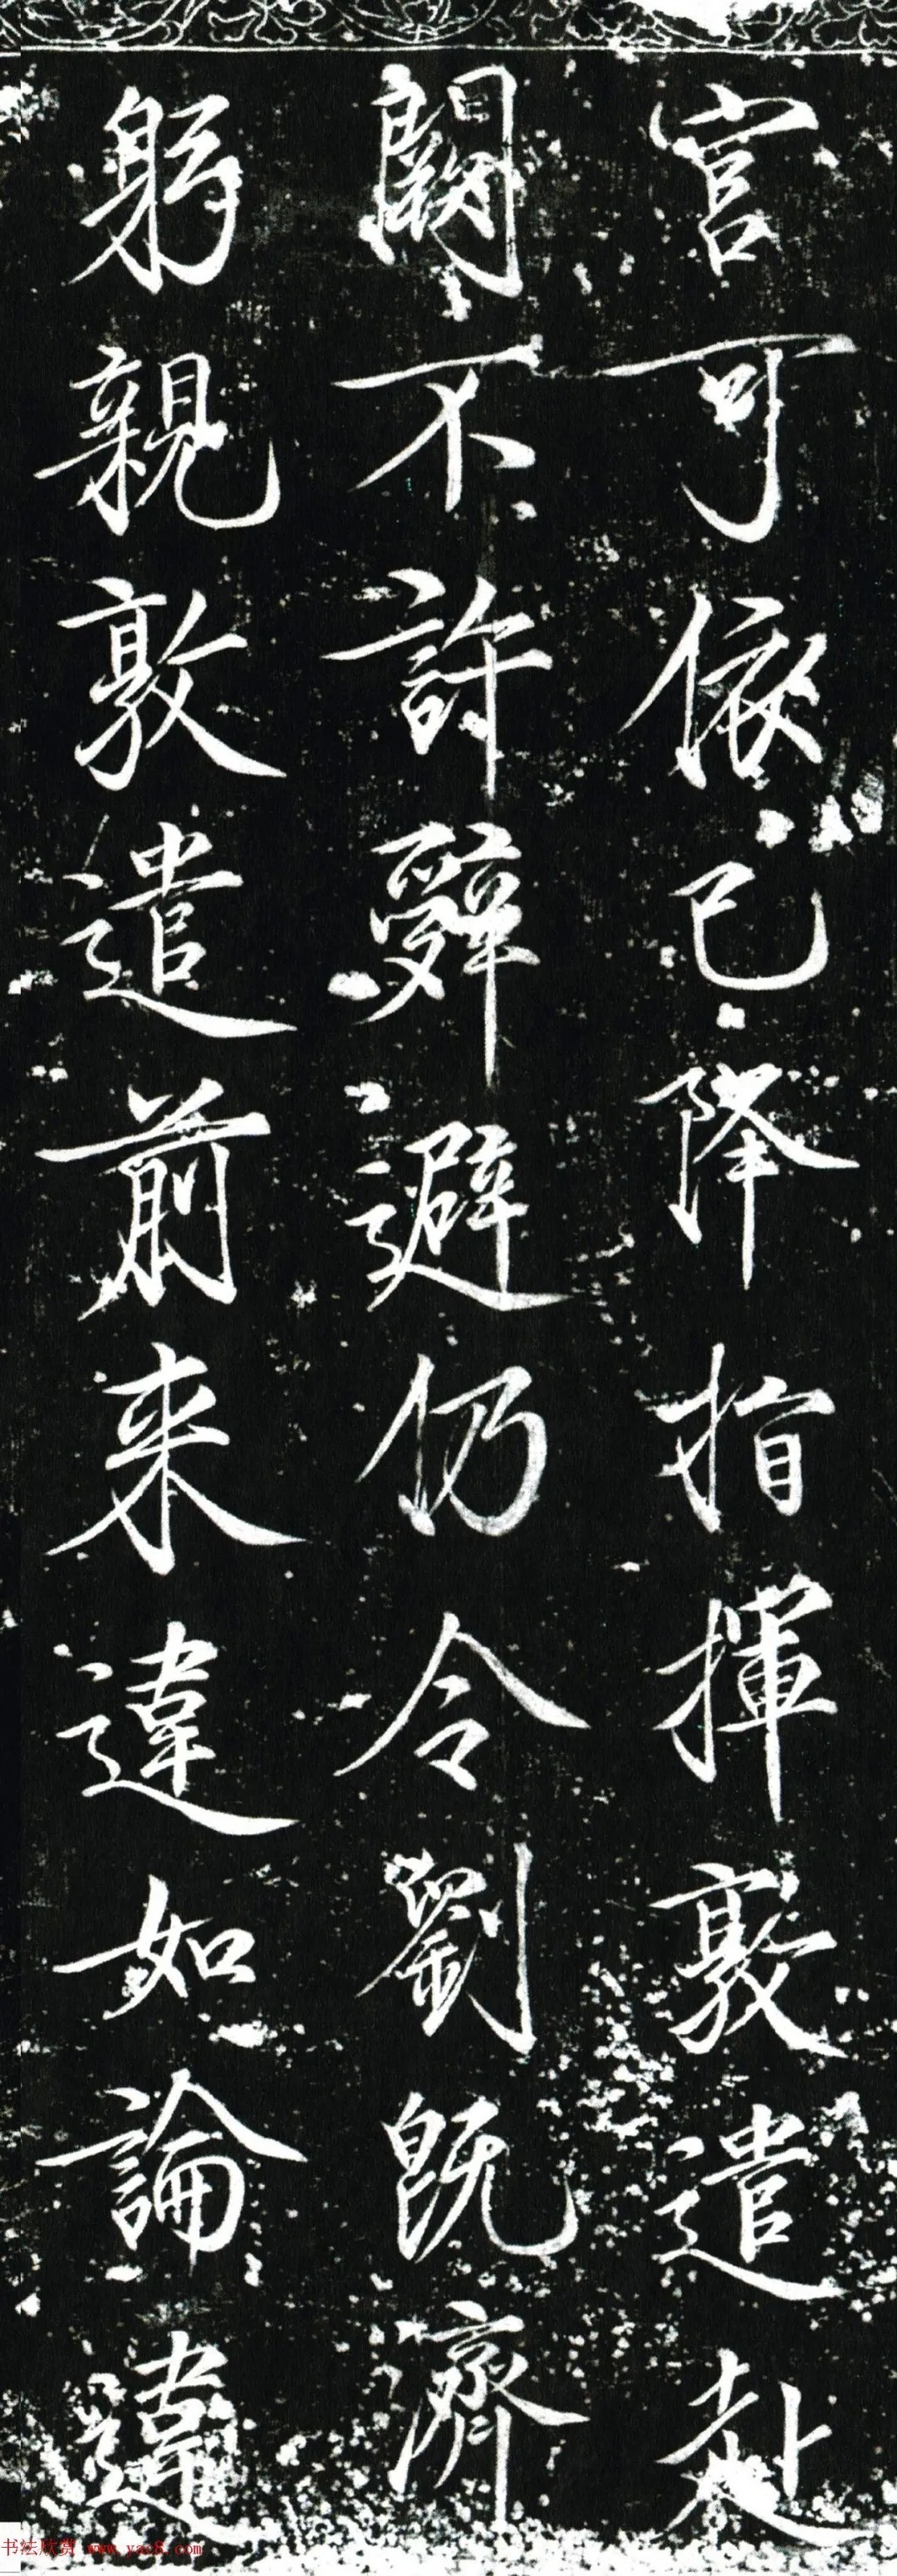 官可依已降指揮敦遣赴
闕不許辭避仍令劉既濟
躬親敦遣前来違如論違
书法欣赏 www.yac8.com